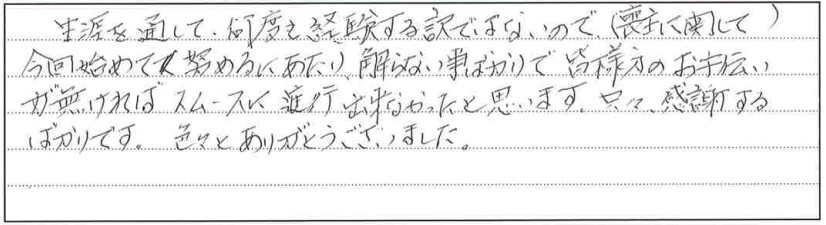 生涯を通して、何度も経験する訳ではないので、(喪主に関して)
今回始めて努めるにあたり、解らない事ばかりで皆様方のお手伝い
が無ければスムースに進行出来なかったと思います。只々、感謝する
ばかりです。色々とありがとうございました。